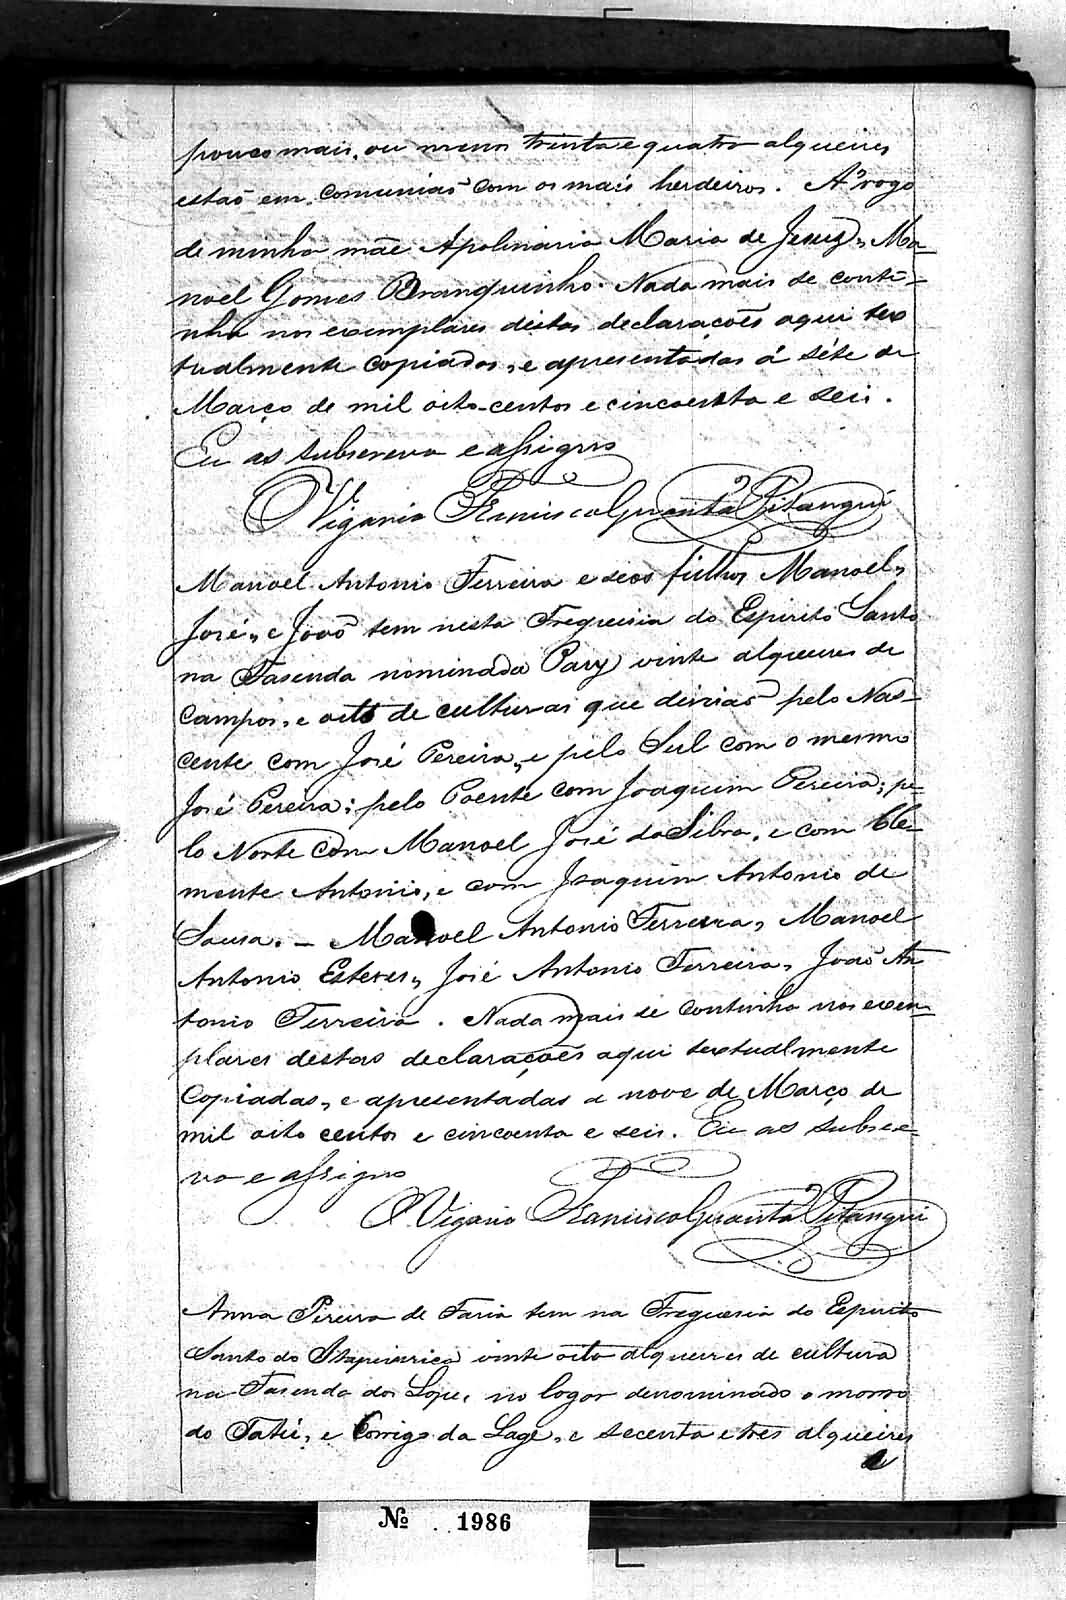 pouco mais, ou menos trinta e quatro alqueires
estaõ em comuniaõ com os mais herdeiros. Aº rogo
de minha mãe Apolinaria Maria de Jesus, Ma-
noel Gomes Branquinho. Nada mais se conti-
nha nos exemplares destas declaracoẽs aqui tex
tualmente copiados, e apresentadas á séte de
Março de mil oito-centos e cincoenta e seis.
Eu as subscrevo e assigno
O Vigario Francisco Guaritá Pitangui
Manoel Antonio Ferreira e seos filhos Manoel,
José, e Joaõ tem nesta Freguesia do Espirito Santo
na Fasenda nominada Pary vinte alqueires de
campos, e oito de culturas que divisaõ pelo Nas-
cente com José Pereira, e pelo Sul com o mesmo
José Pereira; pelo Poente com Joaquim Pereira; pe-
lo Norte com Manoel José da Silva, e com Cle-
mente Antonio, e com Joaquim Antonio de
Sousa. – Manoel Antonio Ferreira, Manoel
Antonio Esteves, José Antonio Ferreira, Joaõ An
tonio Ferreira. Nada mais se continha nos exem-
plares destas declaraçoẽs aqui textualmente
Copiadas, e apresentadas a nove de Março de
mil oito centos e cincoenta e seis. Eu as subscre-
vo e assigno
O Vigario Francisco Guaritá Pitangui
Anna Pereira de Faria tem na Freguesia do Espirito
Santo do Itapecerica vinte oito alqueires de cultura
na Fasenda dos Lopes, no logar denominado o morro
do Tatú, e Corrigo da Lage, e secenta e tres alqueires
Nº 1986